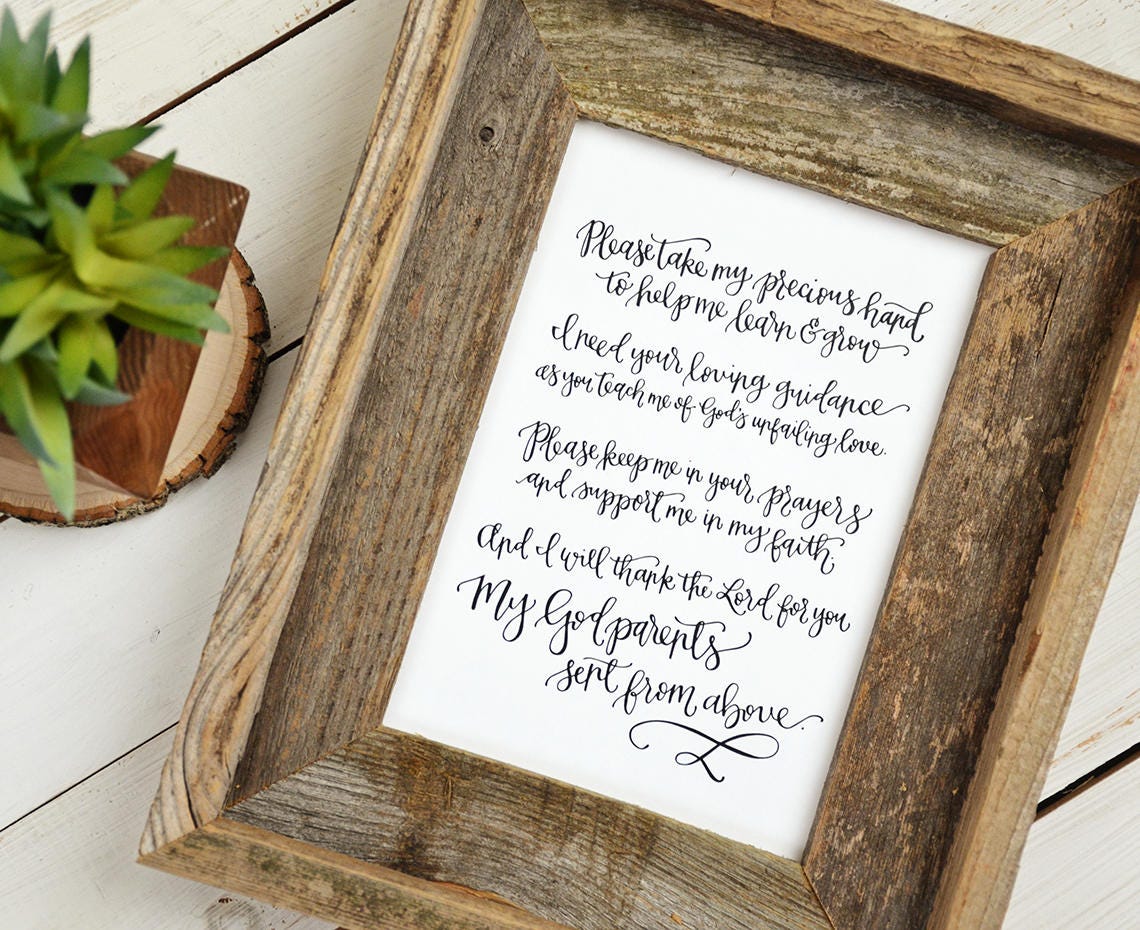 Please take my precious hand,
to help me learn & grow
I need your loving guidance
as you teach me of God's unfailing love.
Please keep me in your prayers
and support me in my faith.
And I will thank the Lord for you
My Godparents
sent from above.